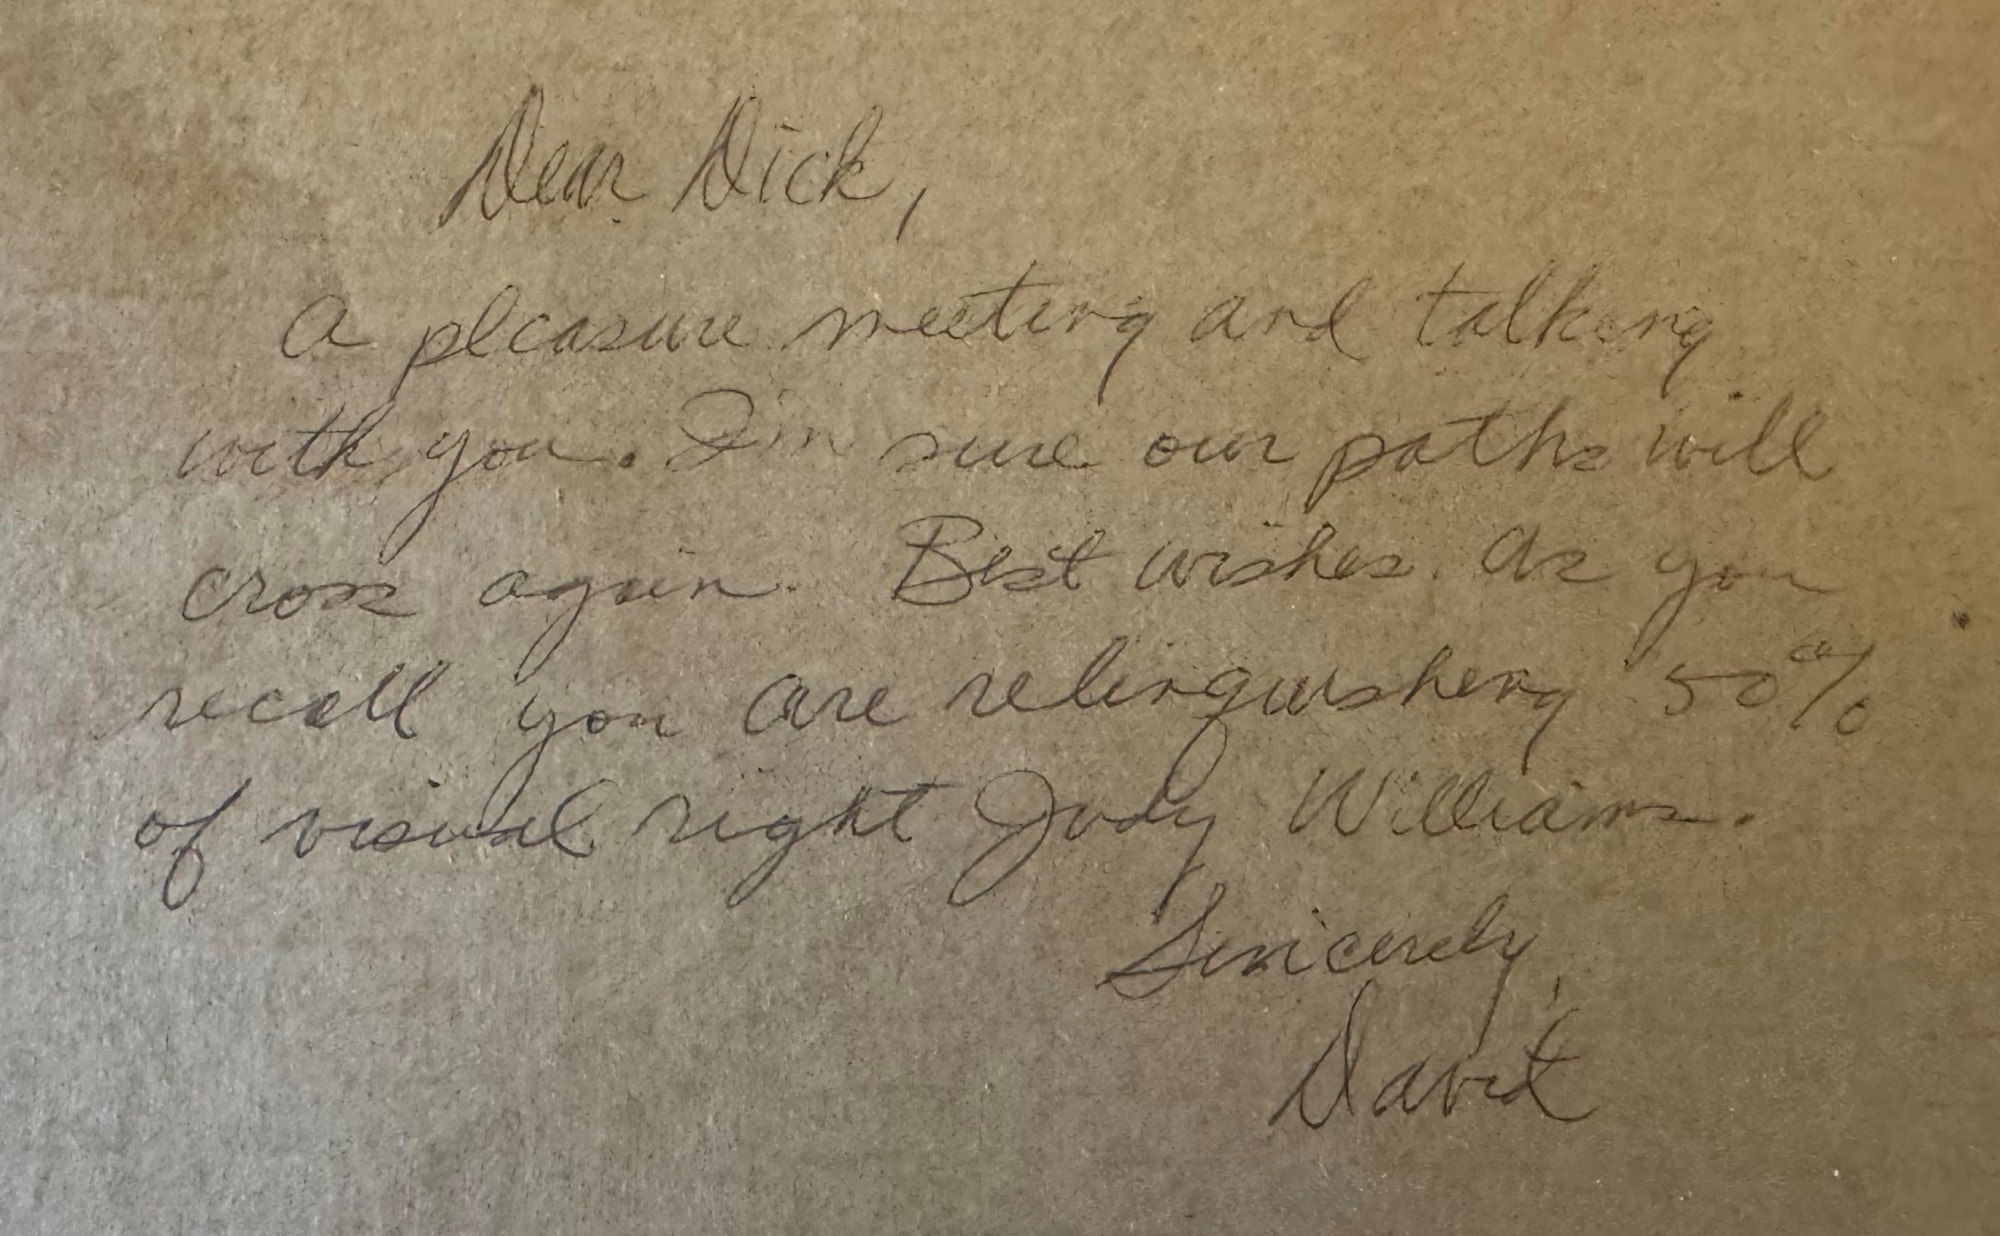 Dear Dick,
A pleasure meeting and talking
with you. I'm sure our paths will
cross again. Best wishes. As you
recall you are relinquishing 50%
of visual right Jody Williams.
Sincerely,
David